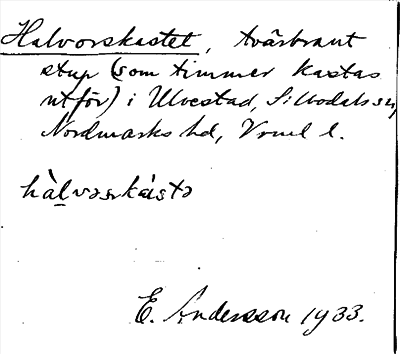 Halvorskastet, tvärbrant
stup (som timmer kastas
utför) i Ulvestad, Sillbodals sn,
Nordmarks hd, Vrml l.
hàlvərkástə
E. Andersson 1933.